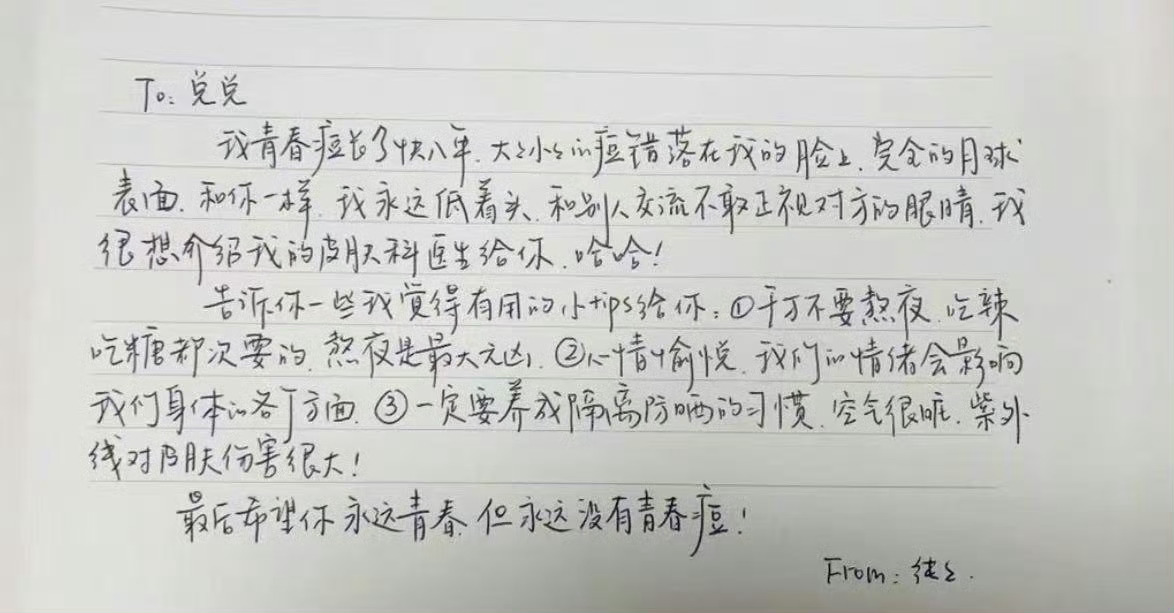 To: 兑兑
我青春痘长了快八年.大大小小的痘错落在我的脸上.完全的月球
表面.和你一样.我永远低着头.和别人交流不敢正视对方的眼睛.我
很想介绍我的皮肤科医生给你.哈哈!
告诉你一些我觉得有用的小tips给你:①千万不要熬夜.吃辣
吃糖都次要的.熬夜是最大元凶.②心情愉悦.我们的情绪会影响
我们身体的各个方面.③一定要养成隔离防晒的习惯.空气很脏.紫外
线对皮肤伤害很大!
最后希望你永远青春.但永远没有青春痘!
From: